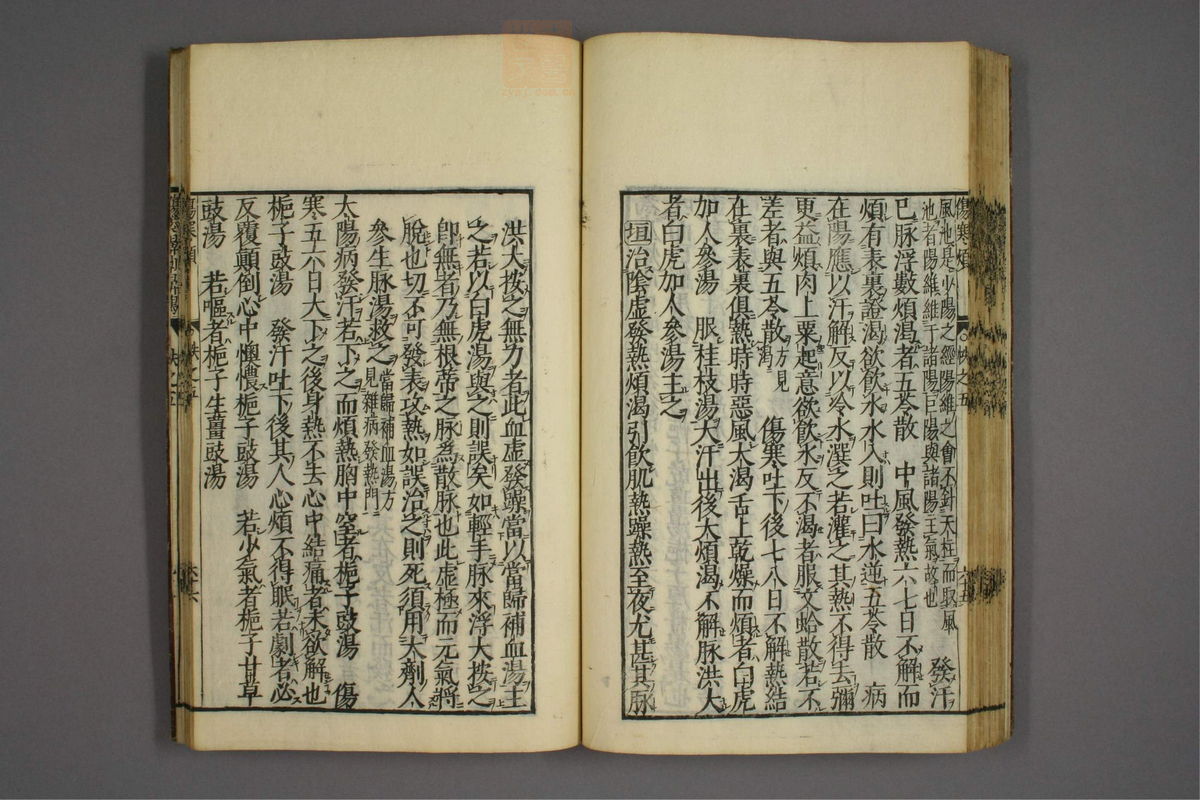 風池是少陽之經陽維之會不針天柱而取風
池者陽維維于諸陽巨陽與諸陽主氣故也
發汗
已脉浮數煩渴者五苓散　中風發熱六七日不解而
煩有表裏證渴欲飲水水入則吐曰水逆五苓散　病
在陽應以汗解反以冷水潠之若灌之其熱不得去彌
更益煩肉上粟起意欲飲水反不渴者服文蛤散若不
差者與五苓散方見渴　傷寒吐下後七八日不解熱結
在裏表裏俱熱時時惡風大渴舌上乾燥而煩者白虎
加人參湯　服桂枝湯大汗出後大煩渴不解脉洪大
者白虎加人參湯主之
垣治陰虛發熱煩渴引飲肌熱躁熱至夜尤甚其脉
洪大按之無力者此血虛發躁當以當歸補血湯主
之若以白虎湯與之則誤矣如輕手脉來浮大按之
即無者乃無根蒂之脉爲散脉也此虛極而元氣將
脫也切不可發表攻熱如誤治之則死須用大劑人
參生脉湯救之當歸補血湯方見雜病發熱門
太陽病發汗若下之而煩熱胸中窒者梔子豉湯　傷
寒五六日大下之後身熱不去心中結痛者未欲解也
梔子豉湯　發汗吐下後其人心煩不得眠若劇者必
反覆顛倒心中懊憹梔子豉湯　若少氣者梔子甘草
豉湯　若嘔者梔子生薑豉湯
傷寒煩